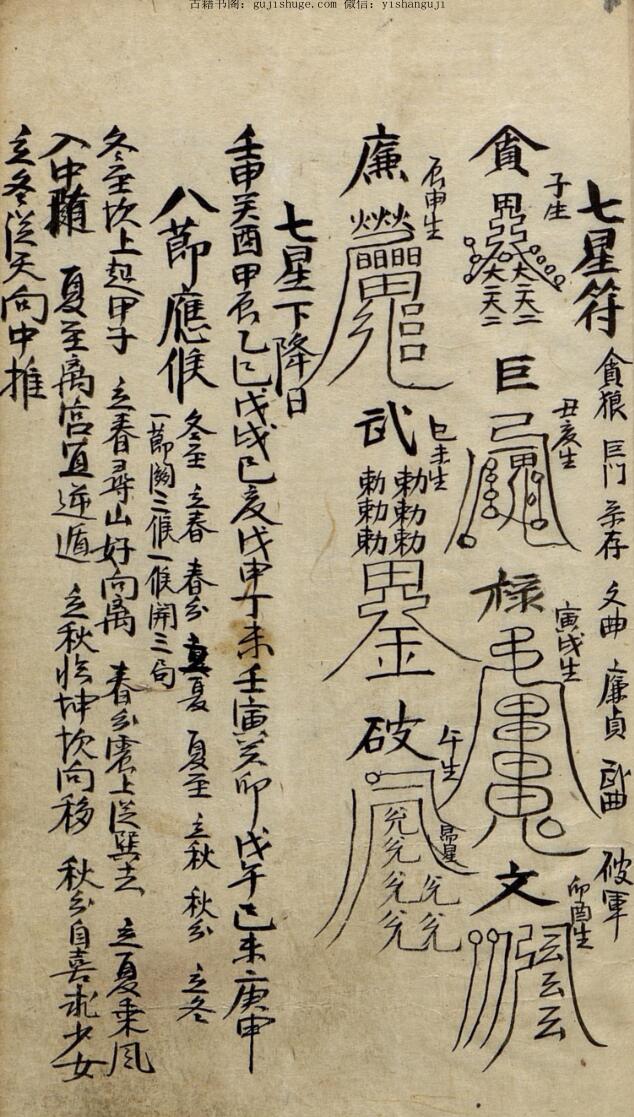 古籍书阁：gujishuge.com 微信：yishanguji
七星符 貪狼 巨门 禄存 文曲 廉貞 武曲 破軍
貪 子生
巨 丑亥生
禄 寅戌生
文 卯酉生
廉 辰申生
武 巳未生
勅勅勅
勅勅勅
破 午生
昴星
七星下降日
壬申癸酉甲辰乙巳戊戌己亥戊申丁未壬寅癸卯戊午己未庚申
八節應候 冬至 立春 春分 立夏 夏至 立秋 秋分 立冬
一節関三候一候開三旬
冬至坎上起甲子 立春尋山好向离 春分震上從巽去 立夏乗風
入中随 夏至离宫宜逆遁 立秋临坤坎向移 秋分自喜求少女
立冬從天向中推